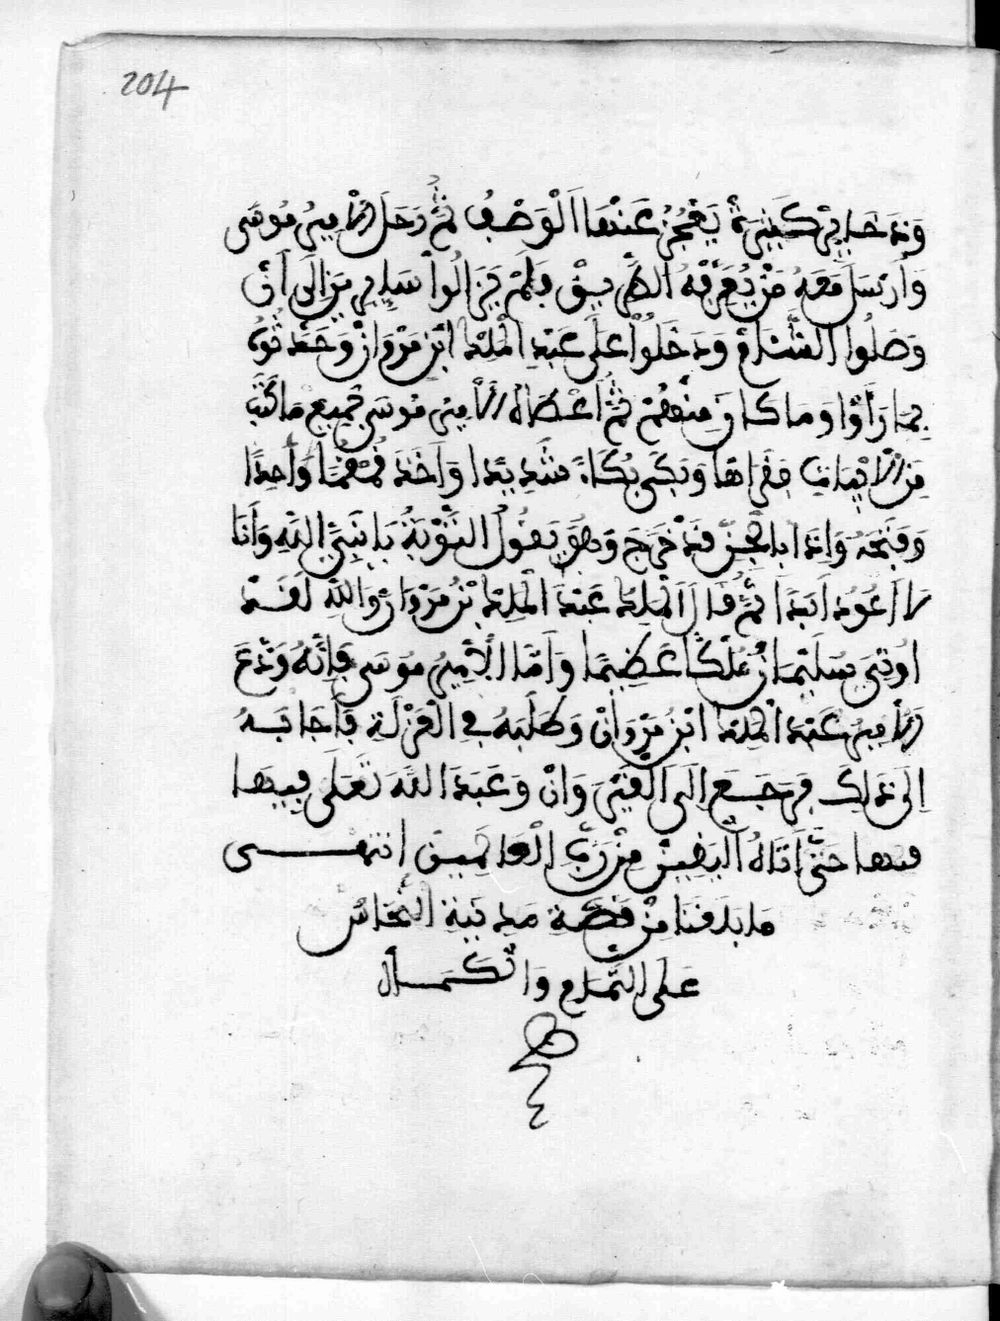 204
وَذَخَاير كَثِيرَة يَعْجُزُ عَنْهَا الْوَصْفُ ثُمَّ رَحَلَ الأمِيرُ مُوسَى
وَأرْسَلَ مَعَهُ مَنْ يُعَرِّفُهُ الطَّرِيقَ فَلَمْ يَزَالُوا سَايِرِينَ إلَى أنْ
وَصَلُوا الشَّامَ وَدَخَلُوا عَلَى عَبْدِ الْمَلِكِ ابْنِ مَرْوَانْ وَحَدَّثُوهُ
بِمَا رَأَوْا وما كان مِنْهُمْ ثُمَّ أعْطَاهُ الأمِيرُ مُوسَى جَمِيعَ مَا كَتَبَ
مِنَ الأبْيَاتِ فَقَرَأهَا وَبَكَى بُكَاءً شَدِيدًا وَأخَذَ قُمْقُمًا وَاحِدًا
وَفَتَحَهُ وَإذَا بِالجِنِّ قَدْ خَرَجَ وَهُوَ يَقُولُ التَّوْبَةُ يَا نَبِيَّ اللهِ وَأنَا
لا أعُودُ أبَدًا ثُمَّ قَالَ الْمَلِكُ عَبْدُ الْمَلِكِ بْنُ مَرْوَانْ وَاللهِ لَقَدْ
اُوتِيَ سُلَيْمَانُ مُلْكًا عَظِيمًا وَأمَّا الأمِيرُ مُوسَى فَإنَّهُ وَدَّعَ
الأمِيرَ عَبْدَ الْمَلِكِ ابْنَ مَرْوَانْ وَطَلَبَهُ فِي الْعُزْلَةِ فَأجَابَهُ
إلَى ذَلِكَ فَرَجَعَ إلَى الْقَيْرَوَانْ وَعَبَدَ اللهَ تَعَلَى فِيهَا
حَتَّى أتَاهُ الْيَقِينُ مِنْ رَبِّ الْعَالَمِينَ انتهـــى
مَا بَلَغَنَا مِنْ قِصَّةِ مَدِينَةِ النُّحَاسْ
عَلَى التَّمَامِ وَالْكَمَـــالْ